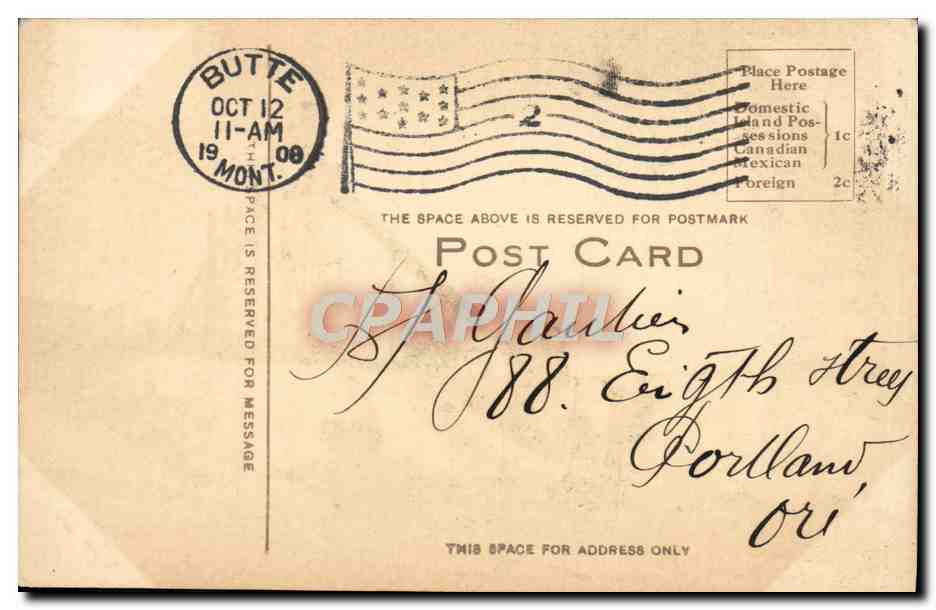 BUTTE
OCT 12
11-AM
19 08
MONT.
2
Place Postage
Here
Domestic
Island Pos-
sessions
Canadian
Mexican
1c
Foreign 2c
THE SPACE ABOVE IS RESERVED FOR POSTMARK
POST CARD
CPAPHIL
88. Eigth Street
Portland,
Ore
SPACE IS RESERVED FOR MESSAGE
THIS SPACE FOR ADDRESS ONLY